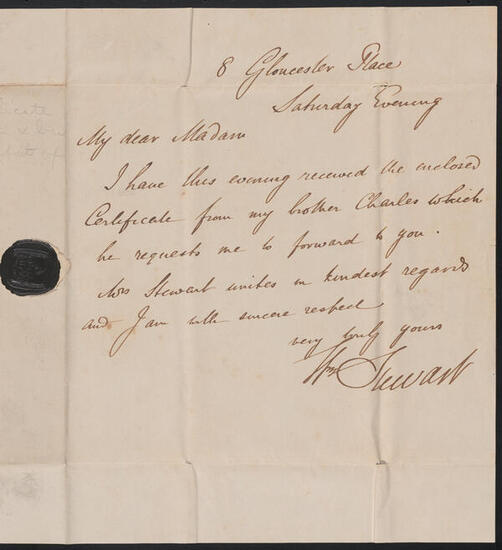 8 Gloucester Place
Saturday Evening
My dear Madam
I have this evening received the enclosed
Certificate from my brother Charles which
he requests me to forward to you.
Mrs Stewart unites in kindest regards
and I am with sincere respect
very truly yours
Wm Stewart